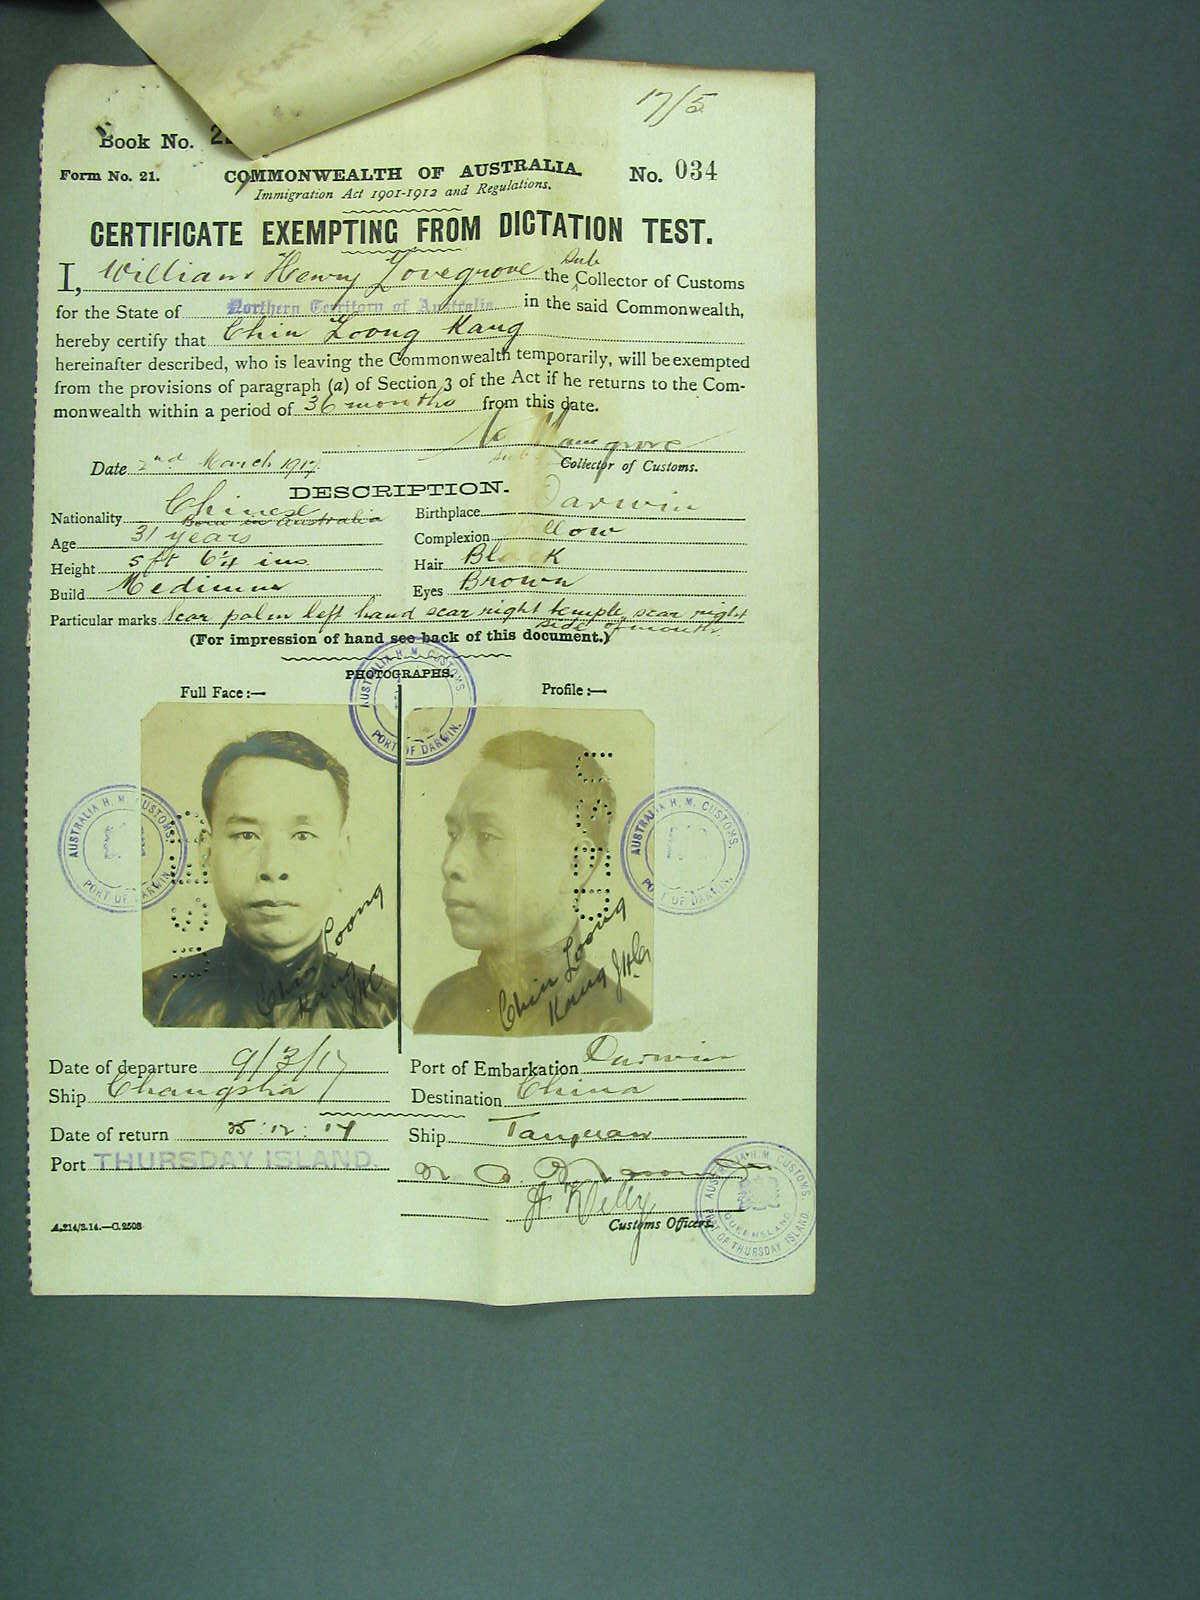 17/5
Book No. 2
Form No. 21.
COMMONWEALTH OF AUSTRALIA.
No. 034
Immigration Act 1901-1912 and Regulations.
CERTIFICATE EXEMPTING FROM DICTATION TEST.
I, William Henry Lovegrove the Sub Collector of Customs
for the State of Northern Territory of Australia in the said Commonwealth,
hereby certify that Chin Loong Kang
hereinafter described, who is leaving the Commonwealth temporarily, will be exempted
from the provisions of paragraph (a) of Section 3 of the Act if he returns to the Com-
monwealth within a period of 36 months from this date.
Lovegrove
Date 2nd March 1917. Sub Collector of Customs.
DESCRIPTION.
Nationality Chinese
Born in Australia
Birthplace Darwin
Age 31 years
Complexion
Height 5 ft 6¼ ins
Hair Black
Build Medium
Eyes Brown
Particular marks Scar palm left hand scar right temple, scar right
side of mouth
(For impression of hand see back of this document.)
PHOTOGRAPHS.
Full Face:—
Profile:—
AUSTRALIA H. M. CUSTOMS.
PORT OF DARWIN.
AUSTRALIA H. M. CUSTOMS.
PORT OF DARWIN.
AUSTRALIA H. M. CUSTOMS.
PORT OF DARWIN.
Chin Loong
Kang
Chin Loong
Kang
Date of departure 9/3/17
Port of Embarkation Darwin
Ship Changsha
Destination China
Date of return 25:12:17
Ship Taiyuan
Port THURSDAY ISLAND.
Customs Officers.
AUSTRALIA H.M. CUSTOMS
QUEENSLAND
PORT OF THURSDAY ISLAND.
A.214/3.14.—C.2508